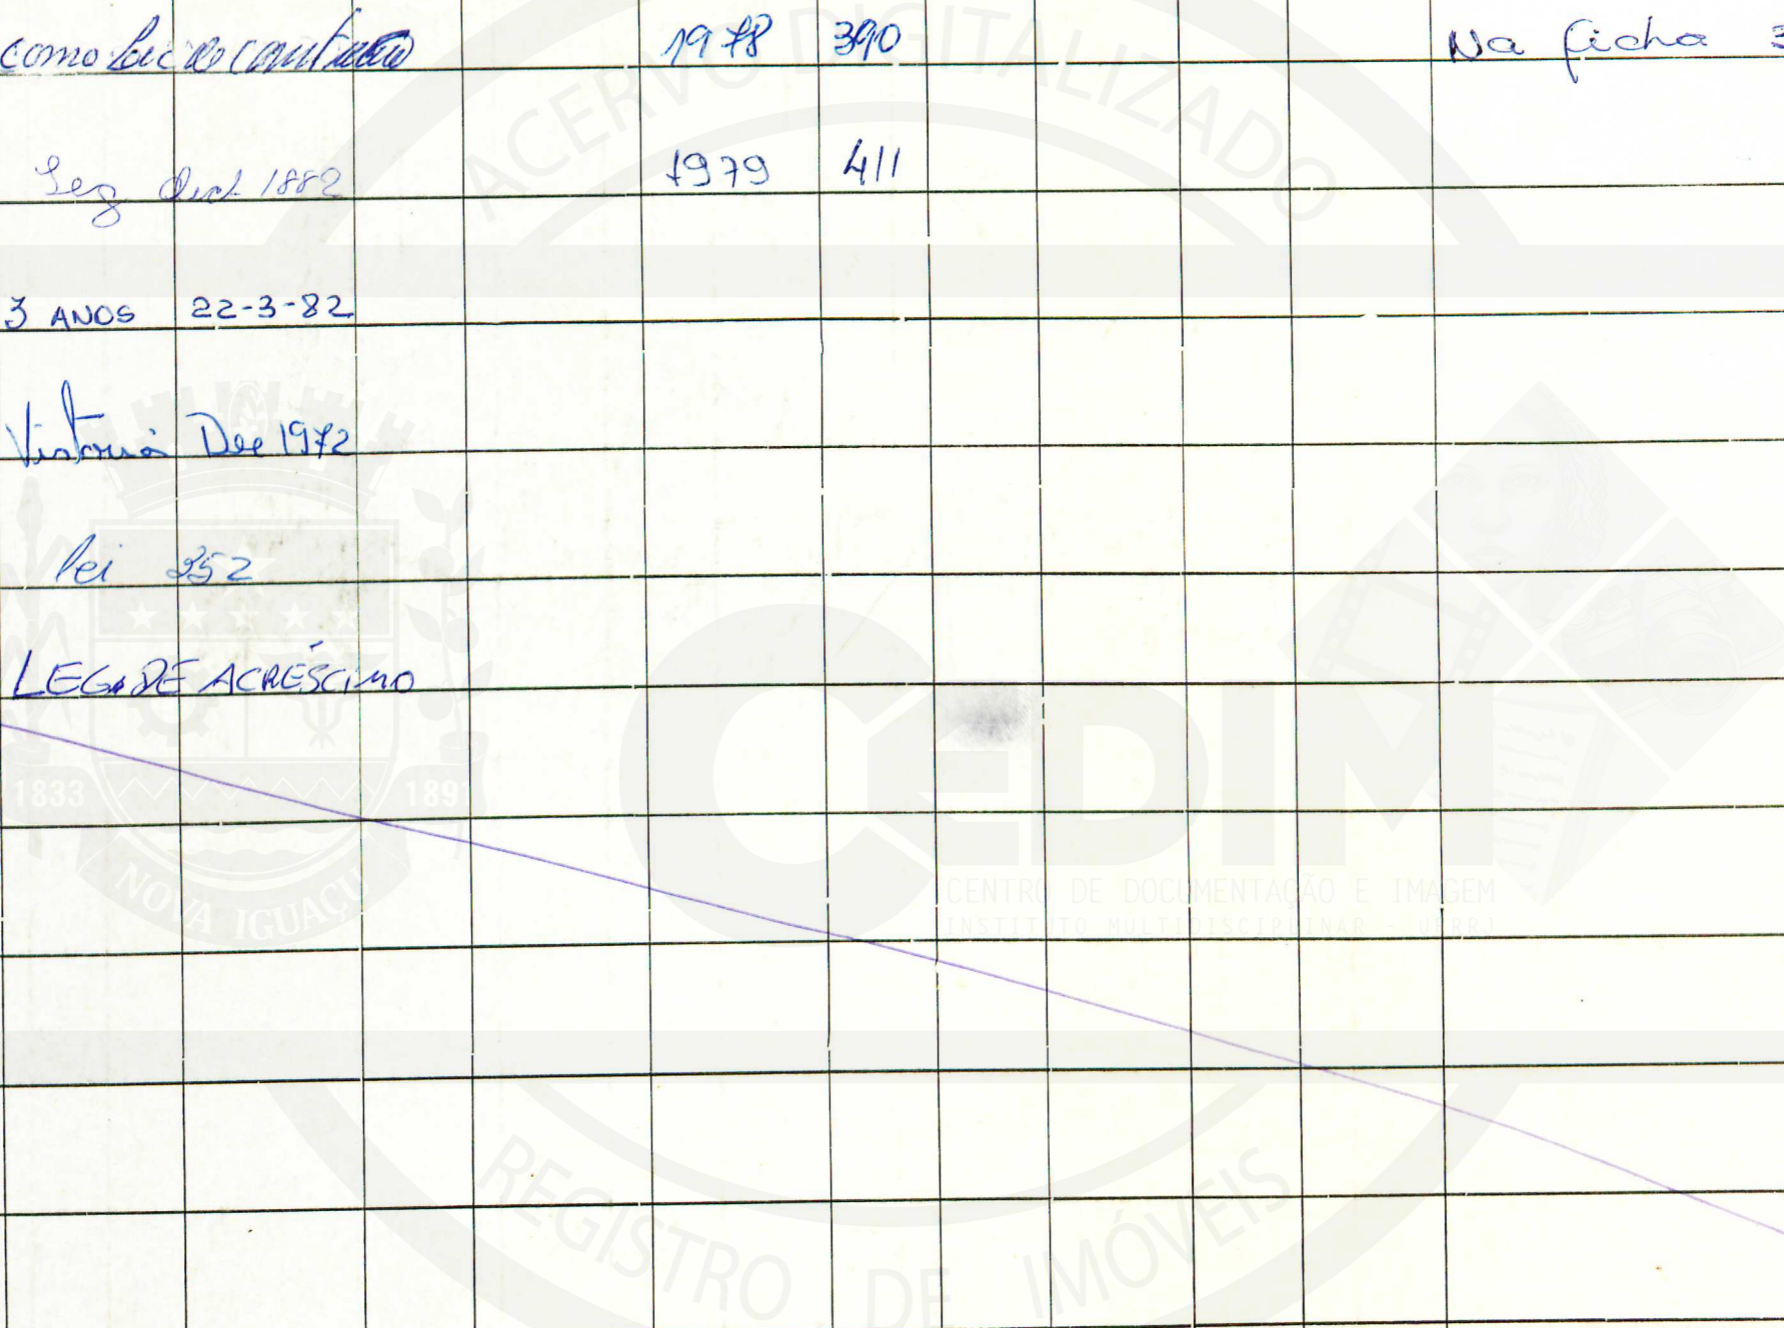 como 1978 390 Na ficha 3
Leg 1882 1979 411
3 ANOS 22-3-82
Vistoria Dec 1972
lei 252
LEG. DE ACRÉSCIMO
ACERVO DIGITALIZADO
1833 1891
NOVA IGUAÇU
CEDIM
CENTRO DE DOCUMENTAÇÃO E IMAGEM
INSTITUTO MULTIDISCIPLINAR - UFRRJ
REGISTRO DE IMÓVEIS